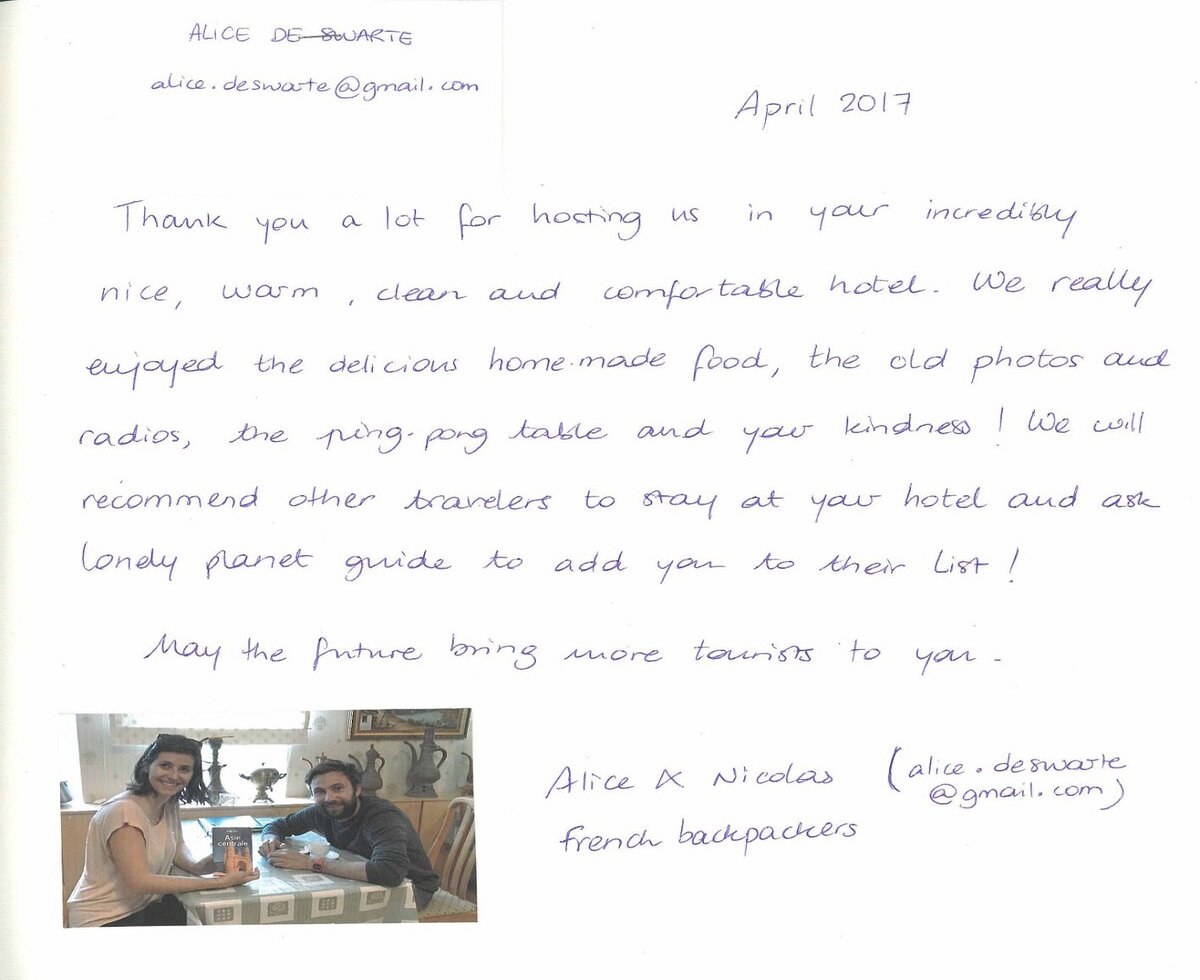 ALICE DE SWARTE
alice.deswarte@gmail.com
April 2017
Thank you a lot for hosting us in your incredibly
nice, warm, clean and comfortable hotel. We really
enjoyed the delicious home-made food, the old photos and
radios, the ping-pong table and your kindness! We will
recommend other travelers to stay at your hotel and ask
lonely planet guide to add you to their list!
May the future bring more tourists to you.
Asie
centrale
Alice & Nicolas (alice.deswarte
@gmail.com)
french backpackers